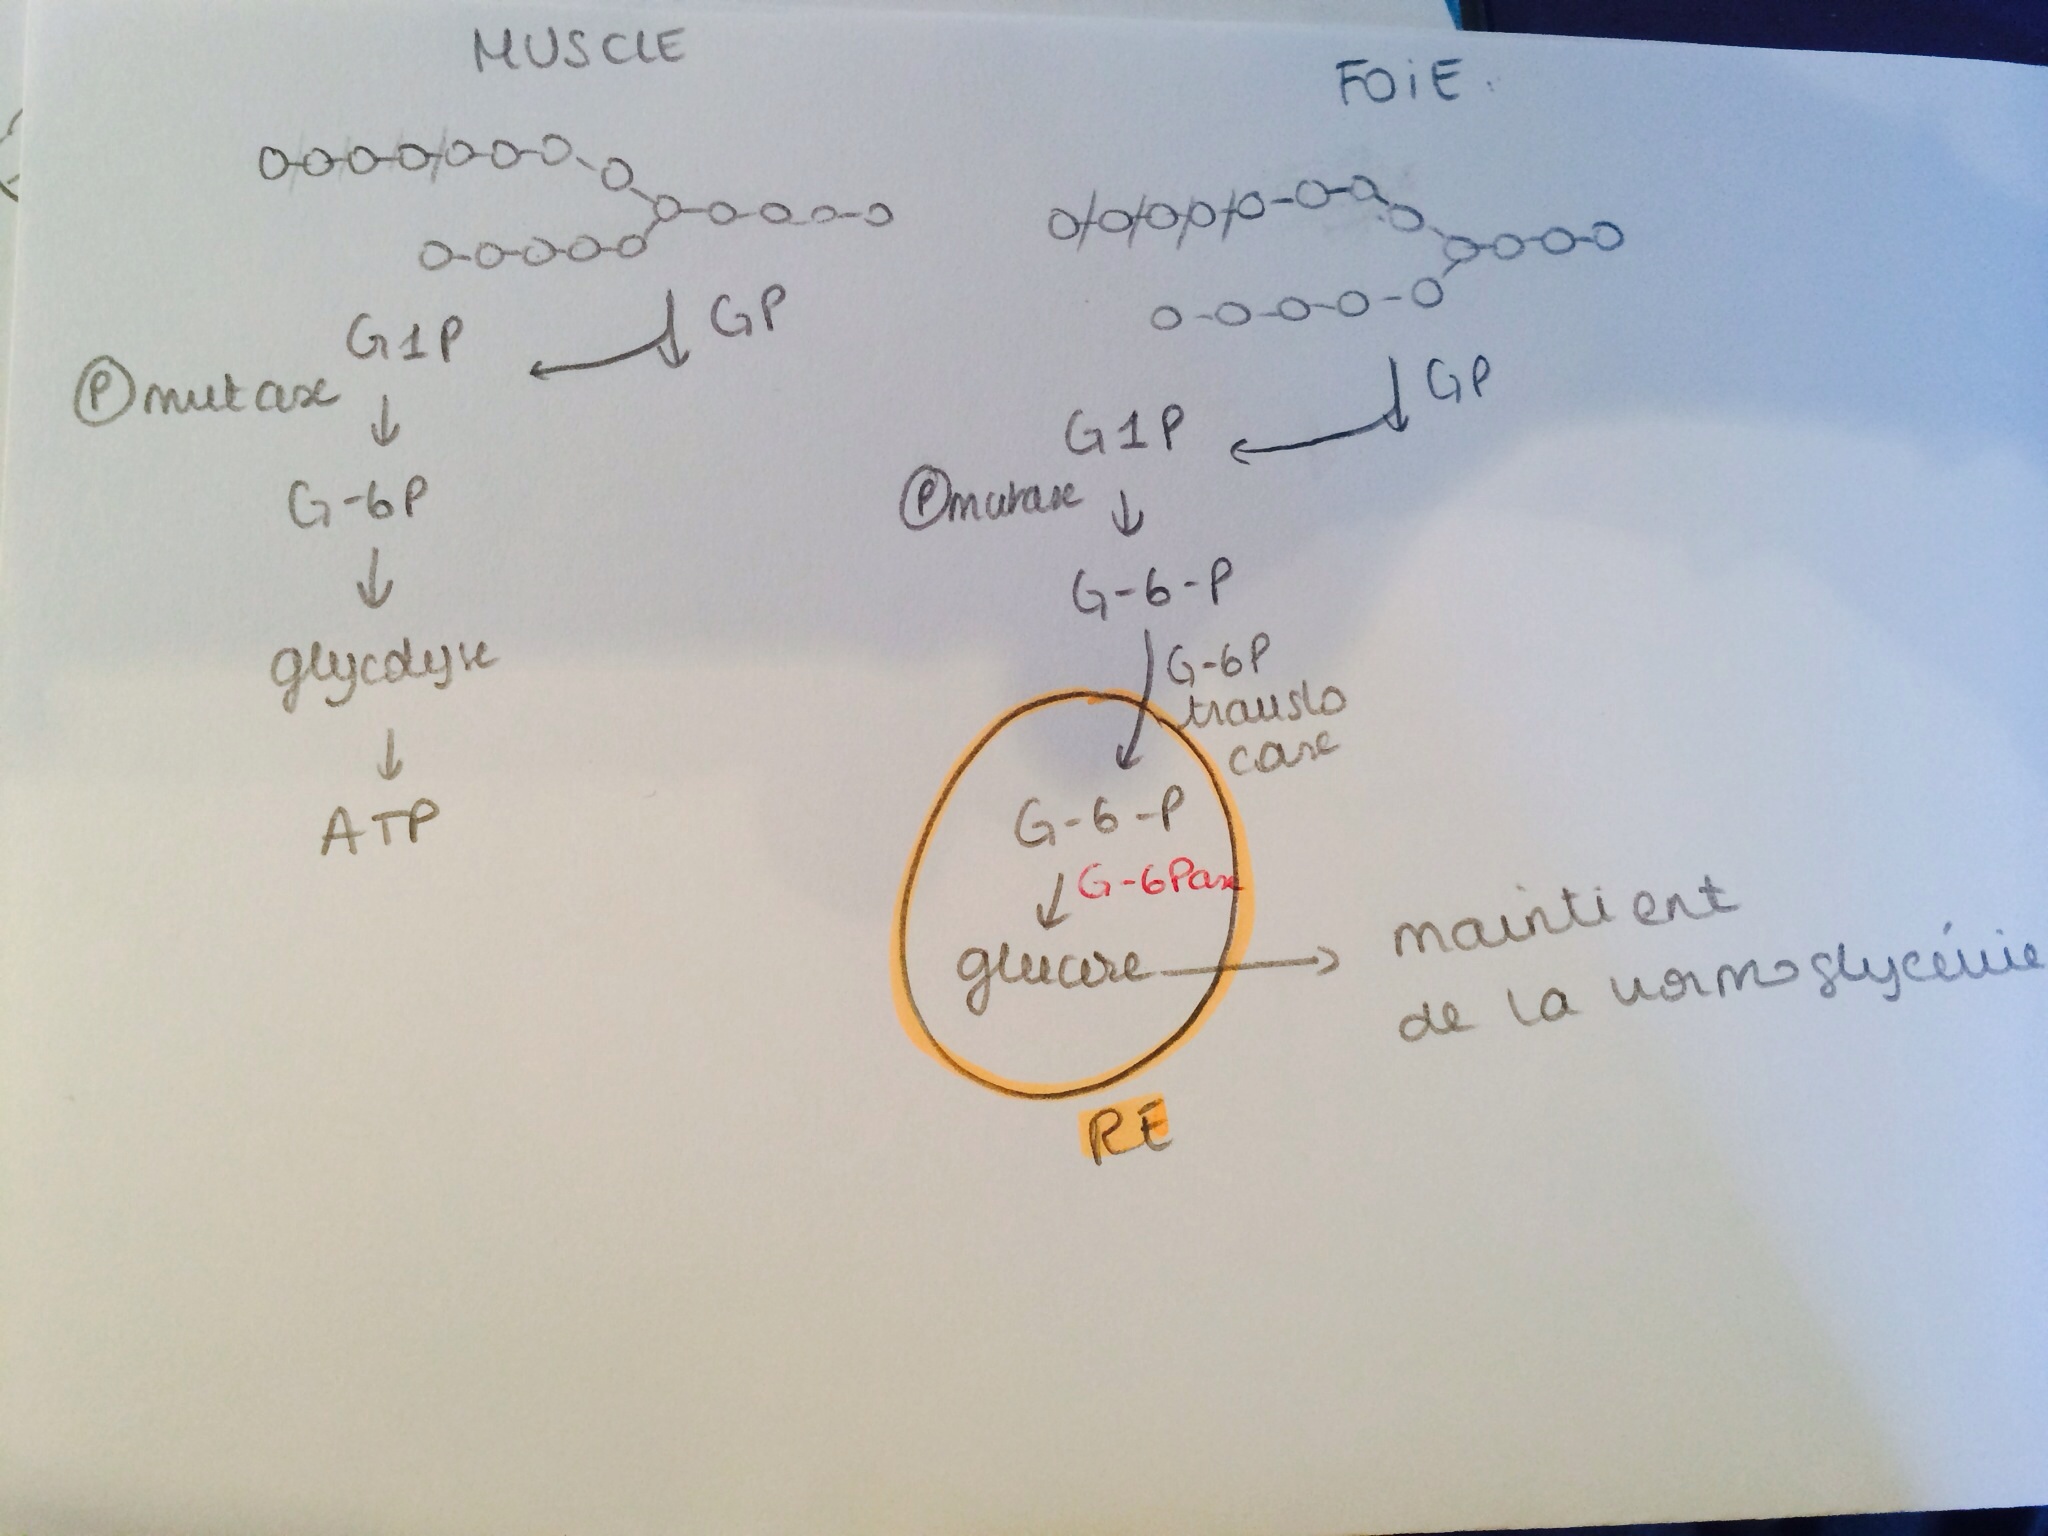 MUSCLE
GP
G1P
Ⓟmutase
G-6P
glycolyse
ATP
FOiE
GP
G1P
Ⓟmutase
G-6-P
G-6P
translo
case
G-6-P
G-6Pase
glucose
RE
maintient
de la normoglycémie